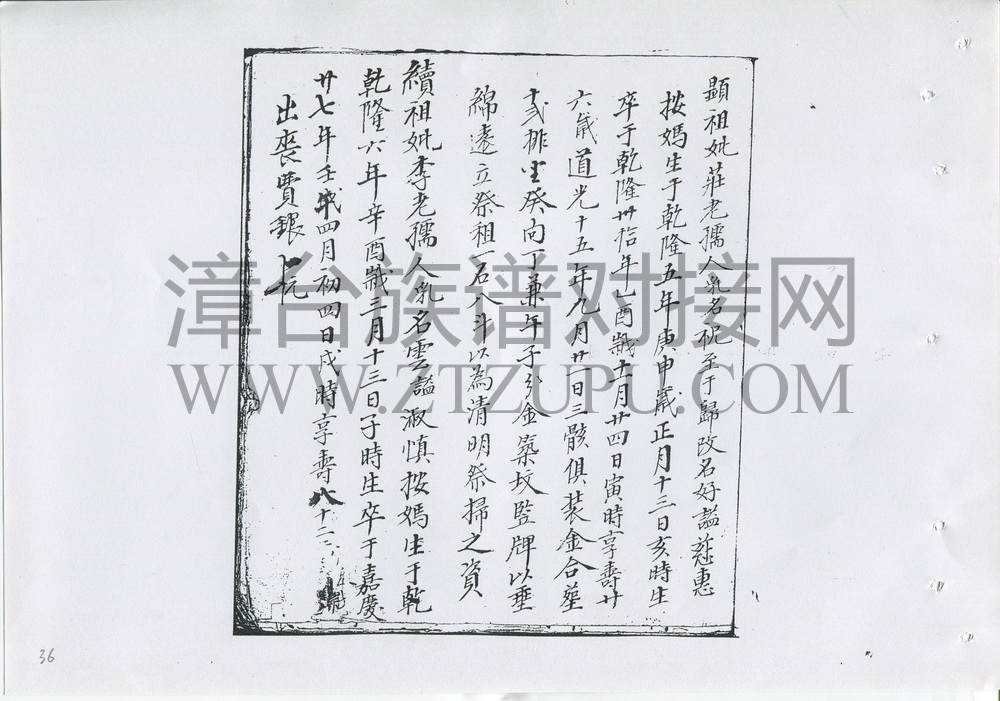 顯祖妣莊老孺人乳名妮至于歸改名好謚慈惠
按媽生于乾隆五年庚申歲正月十三日亥時生
卒于乾隆卅拾年乙酉歲十一月廿四日寅時享壽廿
六歲道光十五年九月廿一日三骸俱裝金合塟
十弍排坐癸向丁兼午子分金築坟监牌以垂
綿遠立祭祖一石八斗以為清明祭掃之資
續祖妣李老孺人乳名雲謚淑慎按媽生于乾
乾隆六年辛酉歲三月十三日子時生卒于嘉慶
廿七年壬戌四月初四日戌時享壽八十二
出喪費銀
漳台族谱对接网
WWW.ZTZUPU.COM
36